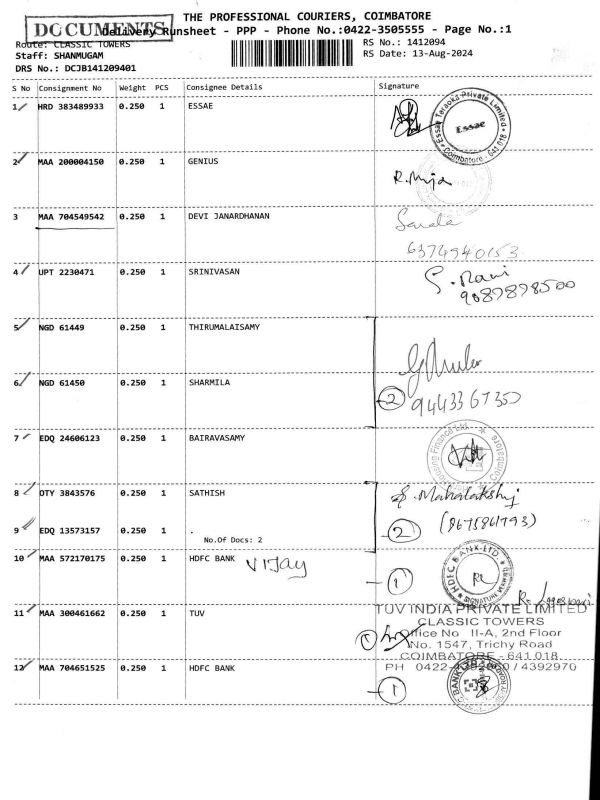 DOCUMENTS
THE PROFESSIONAL COURIERS, COIMBATORE
Delivery Runsheet - PPP - Phone No.:0422-3505555 - Page No.:1
Route: CLASSIC TOWERS
RS No.: 1412094
Staff: SHANMUGAM
RS Date: 13-Aug-2024
DRS No.: DCJB141209401
S No Consignment No Weight PCS Consignee Details Signature
1 HRD 383489933 0.250 1 ESSAE
Essae Teraoka Private Limited
Essae
Coimbatore - 641 018
2 MAA 200004150 0.250 1 GENIUS
3 MAA 704549542 0.250 1 DEVI JANARDHANAN
Sarala
6374940153
4 UPT 2230471 0.250 1 SRINIVASAN
S. Mani
9087898500
5 NGD 61449 0.250 1 THIRUMALAISAMY
6 NGD 61450 0.250 1 SHARMILA
2
9443367350
7 EDQ 24606123 0.250 1 BAIRAVASAMY
8 OTY 3843576 0.250 1 SATHISH
Mahalakshmi
9 EDQ 13573157 0.250 1 .
2
(8675861793)
No.Of Docs: 2
10 MAA 572170175 0.250 1 HDFC BANK VIJAY
1
HDFC BANK LTD.
11 MAA 300461662 0.250 1 TUV
1
TUV INDIA PRIVATE LIMITED
CLASSIC TOWERS
Office No II-A, 2nd Floor
No. 1547, Trichy Road
COIMBATORE - 641 018
12 MAA 704651525 0.250 1 HDFC BANK
1